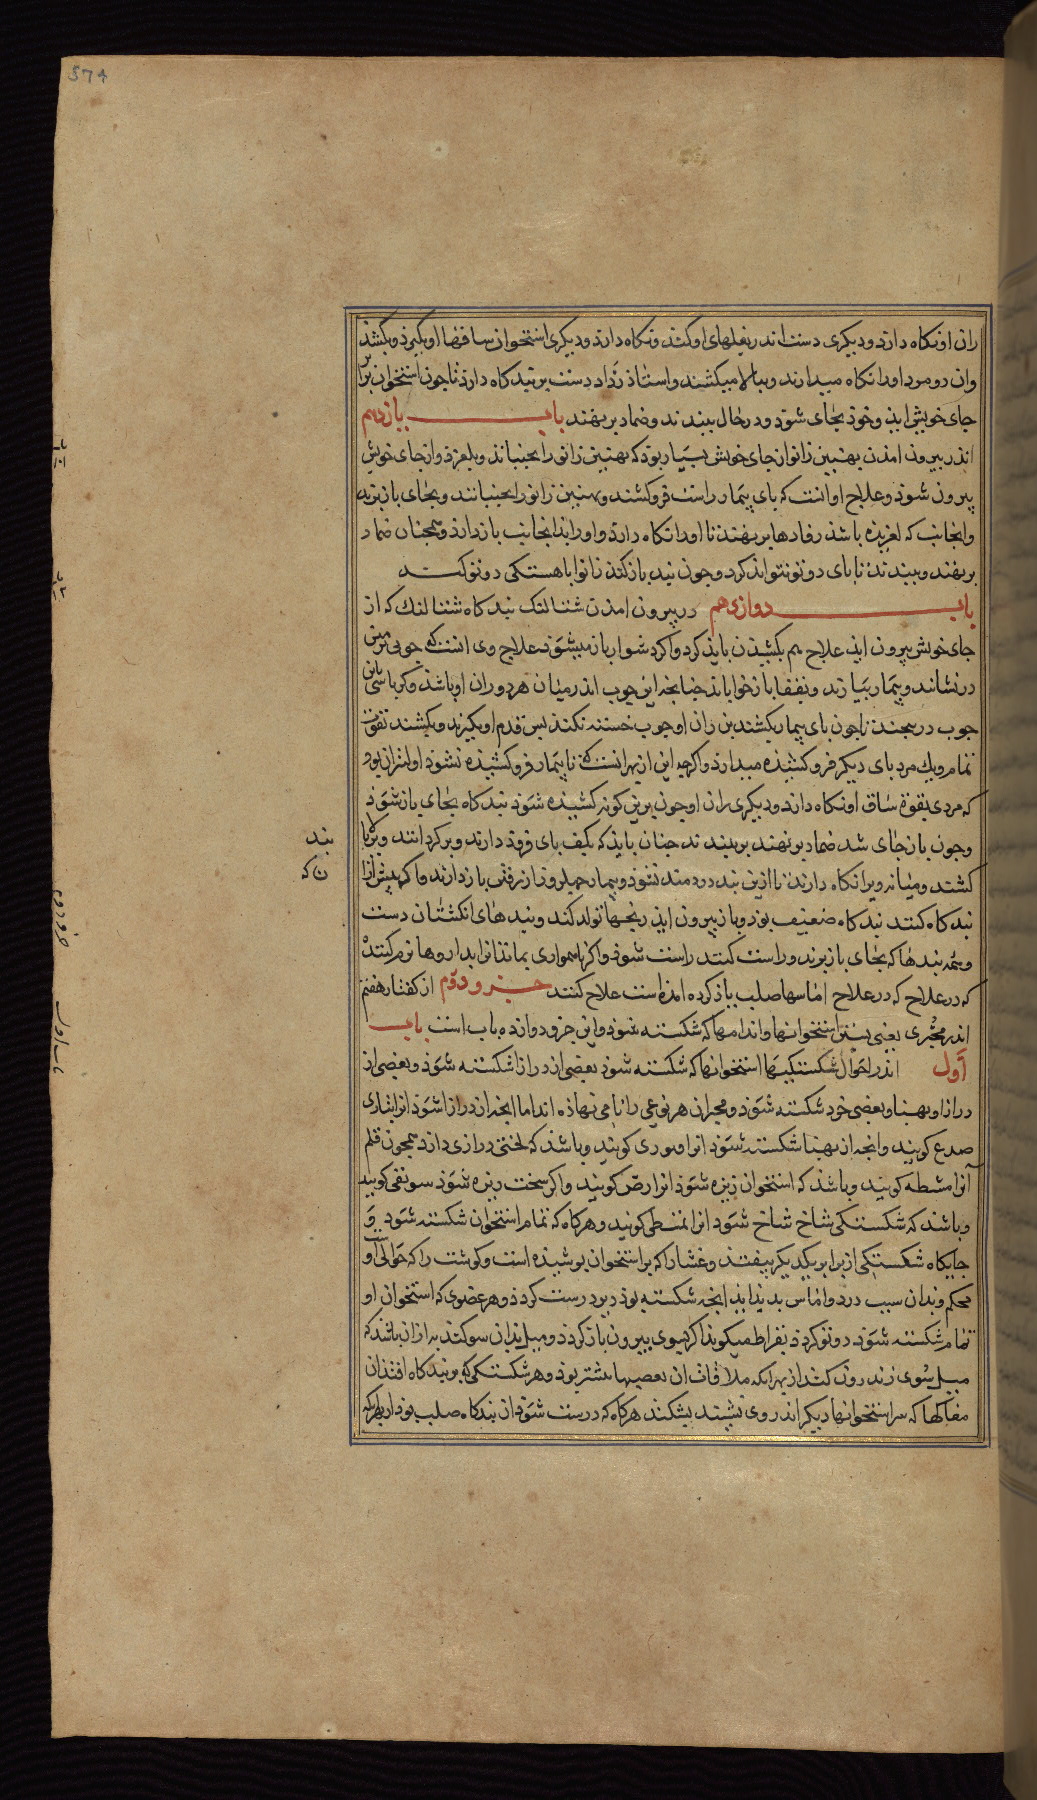 574
ران او نکاه دارذ و دیکری دست اندر بغلهای او کند و نکاه دارذ و دیکری استخوان ساقها او بکیرذ و بکشذ
وان دو مرد او را نکاه میدارند و ببالا میکشند و استاذ زداد دست بر بندکاه دارذ تا جون استخوان برابر
جای خویش ایذ و خوذ بجای شوذ و در حال ببندند و ضماد بر نهند باب یازدهم
اندر بیرون امذن بهنین زانو از جای خویش بسیار بوذ که بهنین زانو را بجنباند و بلغزذ و از جای خویش
بیرون شوذ و علاج او انست که بای بیمار راست فرو کشند و بهنین زانو را بجنبانند و بجای باز برند
وانجانب که لغزیذه باشذ رفادها بر نهند تا او را نکاه دارذ و او را بذانجانب باز دارذ و همجنان ضماد
بر نهند و ببندند تا بای دوتو نتواند کرد و جون بند باز کند زانو باهستکی دوتو کند
باب دوازدهم در بیرون امذن شتالنک بندکاه شتالنک که از
جای خویش بیرون ایذ علاج هم بکشیذن بایذ کرد و اکر دشوار باز میشوذ علاج وی انست که جوبی بزمین
در نشانند و بیمار بیارند و بقفا باز خوابانند جنانجه این جوب اندر میان هر دو ران او باشذ و کرباسی باین
جوب دربیجند تا جون بای بیمار بکشند بن ران او جوب خسته نکند بس قدم او بکیرند و بکشند بقوت
تمام و یک مرد بای دیکر فرو کشیذه میدارذ و اکرجه این از بهر انست که تا بیمار فرو کشیذه نشوذ اولیتر ان بوذ
که مردی بقوة ساق او نکاه دارد و دیکری ران او جون برین کونه کشیذه شوذ بندکاه بجای باز شوذ
و جون باز جای شد ضماد بر نهند بر ببندند جنان بایذ که بکف بای فروذ دارند و بر کردانند و بر بالا
کشند و میانه ویرا نکاه دارند تا ازین بند دردمند نشوذ و بیمار جهل روز از رفتن باز دارند و اکر بیش ازان
بند کاه کنند بندکاه ضعیف بوذ و باز بیرون ایذ رنجها تولد کند و بندهای انکشتان دست
و همه بندها که بجای باز برند و راست کنند راست شوذ و اکر ناهمواری بماند انرا بداروها نرم کننده
که در علاج که در علاج اماسها صلب یاذ کرده امذه است علاح کنند جزو دوّم از کفتار هفتم
اندر مجبّری یعنی بستن استخوانها و اندامها که شکسته شوذ و این جزو دوازده باب است باب
اوّل اندر احوال شکستکیها استخوانها که شکسته شوذ بعضی از درازا شکسته شوذ و بعضی از
درازا و بهنا و بعضی خرد شکسته شوذ و مجبران هر نوعی را نامی نهاذه اند اما انجه از درازا شوذ انرا بتازی
صدع کویند و انجه از بهنا شکسته شوذ انرا کویند و باشذ که لختی درازی دارذ همجون قلم
آنرا مشطیه کویند و باشذ که استخوان ریزه شوذ انرا رضّ کویند و اکر سخت ریزه شوذ سویقی کویند
و باشذ که شکستکی شاخ شاخ شوذ انرا کویند و هرکاه که تمام استخوان شکسته شوذ و
جایکاه شکستکی از برابر یکدیکر بیفتذ و غشا را که بر استخوان بوشیذه است و کوشت را که حوالی او
محکم و بدان سبب درد و اماس بدید ایذ انجه شکسته بوذ زود درست کردذ و هر عضوی که استخوان او
تمام شکسته شوذ دوتو کردذ بقراط میکویذ اکر بسوی بیرون باز کردذ و میل بذان سو کند به ازان باشذ که
میل سوی اندرون کند از بهر انکه ملاقات ان عصبها بیشتر بوذ و هر شکستکی که بر بندکاه افتذ ان
مغاکها که سر استخوانها دیکر اندر وی نشیند بشکند هرکاه که درست شوذ ان بندکاه صلب بوذ از بهر انکه
بند
ن که
جزو دوم
باب اول